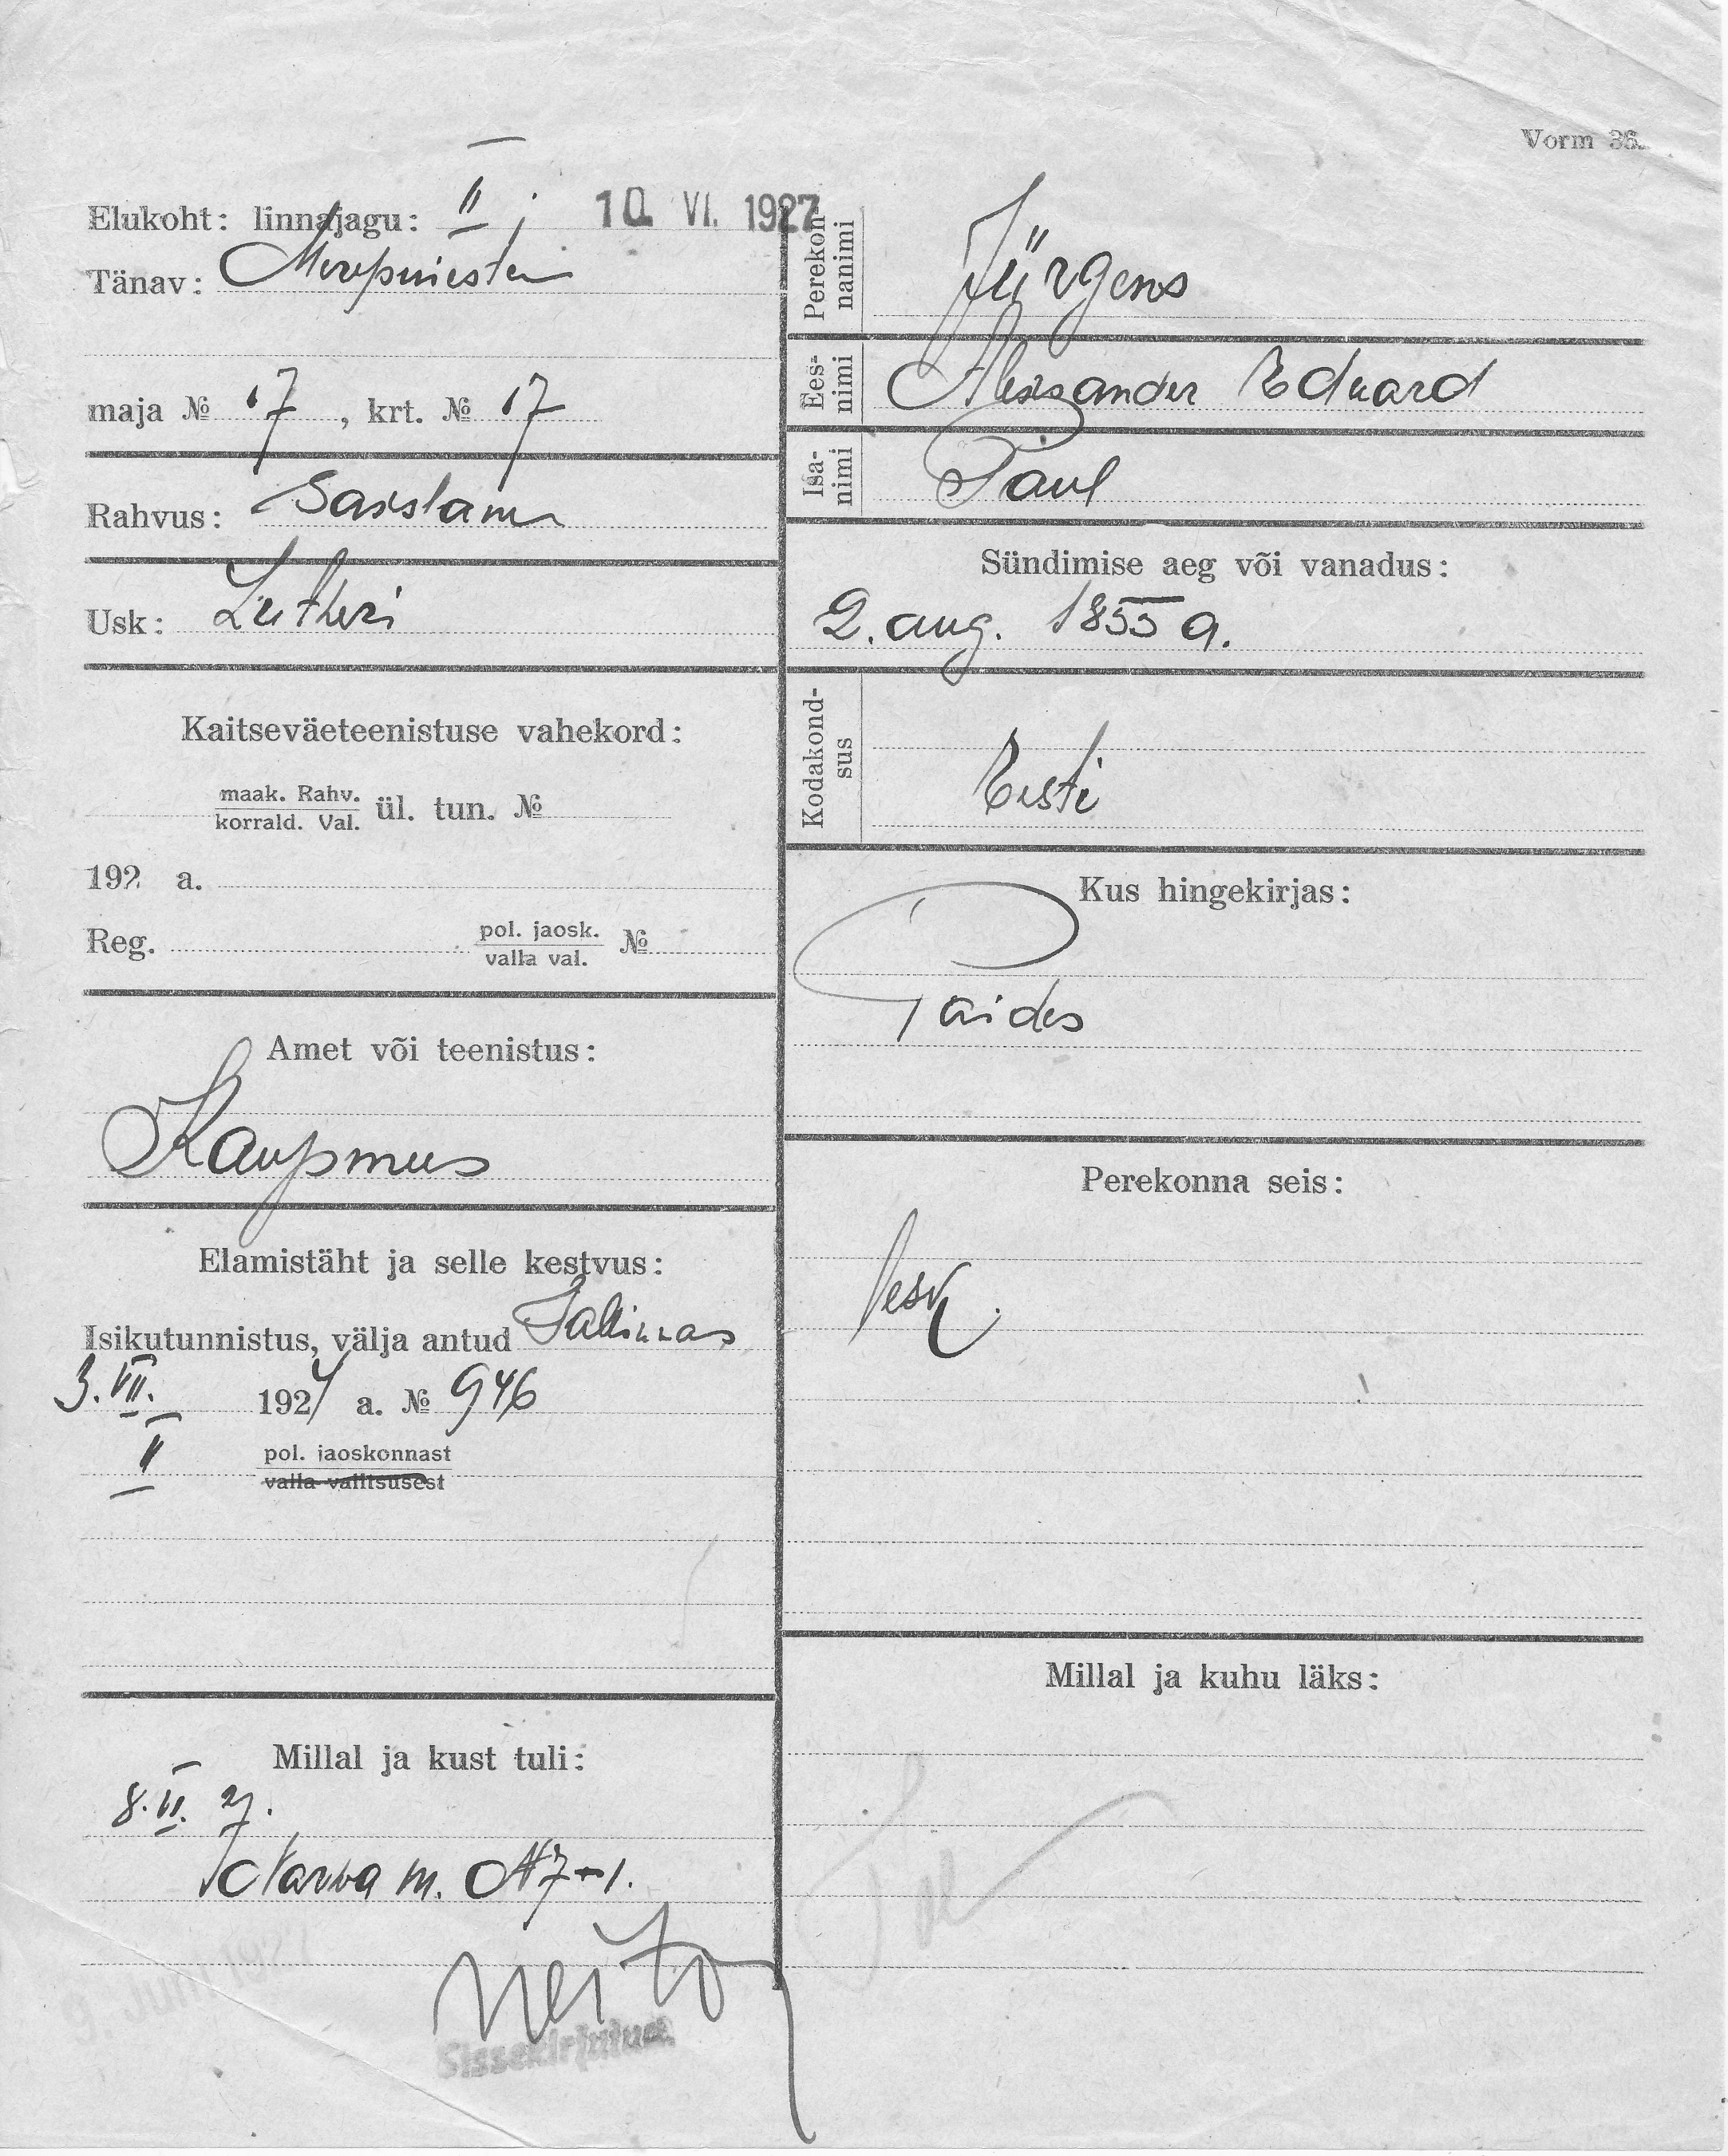 Vorm 36.
Elukoht: linnajagu: II j
10 VI. 1927
Tänav: Merepuiestee
maja № 17, krt. № 17
Rahvus: Sakslane
Usk: Lutheri
Kaitseväeteenistuse vahekord:
maak. Rahv.
korrald. Val. ül. tun. №
192 a.
Reg. pol. jaosk.
valla val. №
Amet või teenistus:
Kaupmees
Elamistäht ja selle kestvus:
Isikutunnistus, välja antud Tallinnas
3. VII. 192 a. № 946
II pol. jaoskonnast
valla valitsusest
Millal ja kust tuli:
Narva m. № 7-1.
9. Juni 1927
Sissekirjutud
Perekon
nanimi
Jürgens
Ees-
nimi
Alexander Eduard
Isa-
nimi
Paul
Sündimise aeg või vanadus:
2. aug. 1855 a.
Kodakond-
sus
Eesti
Kus hingekirjas:
Paides
Perekonna seis:
lesk.
Millal ja kuhu läks: